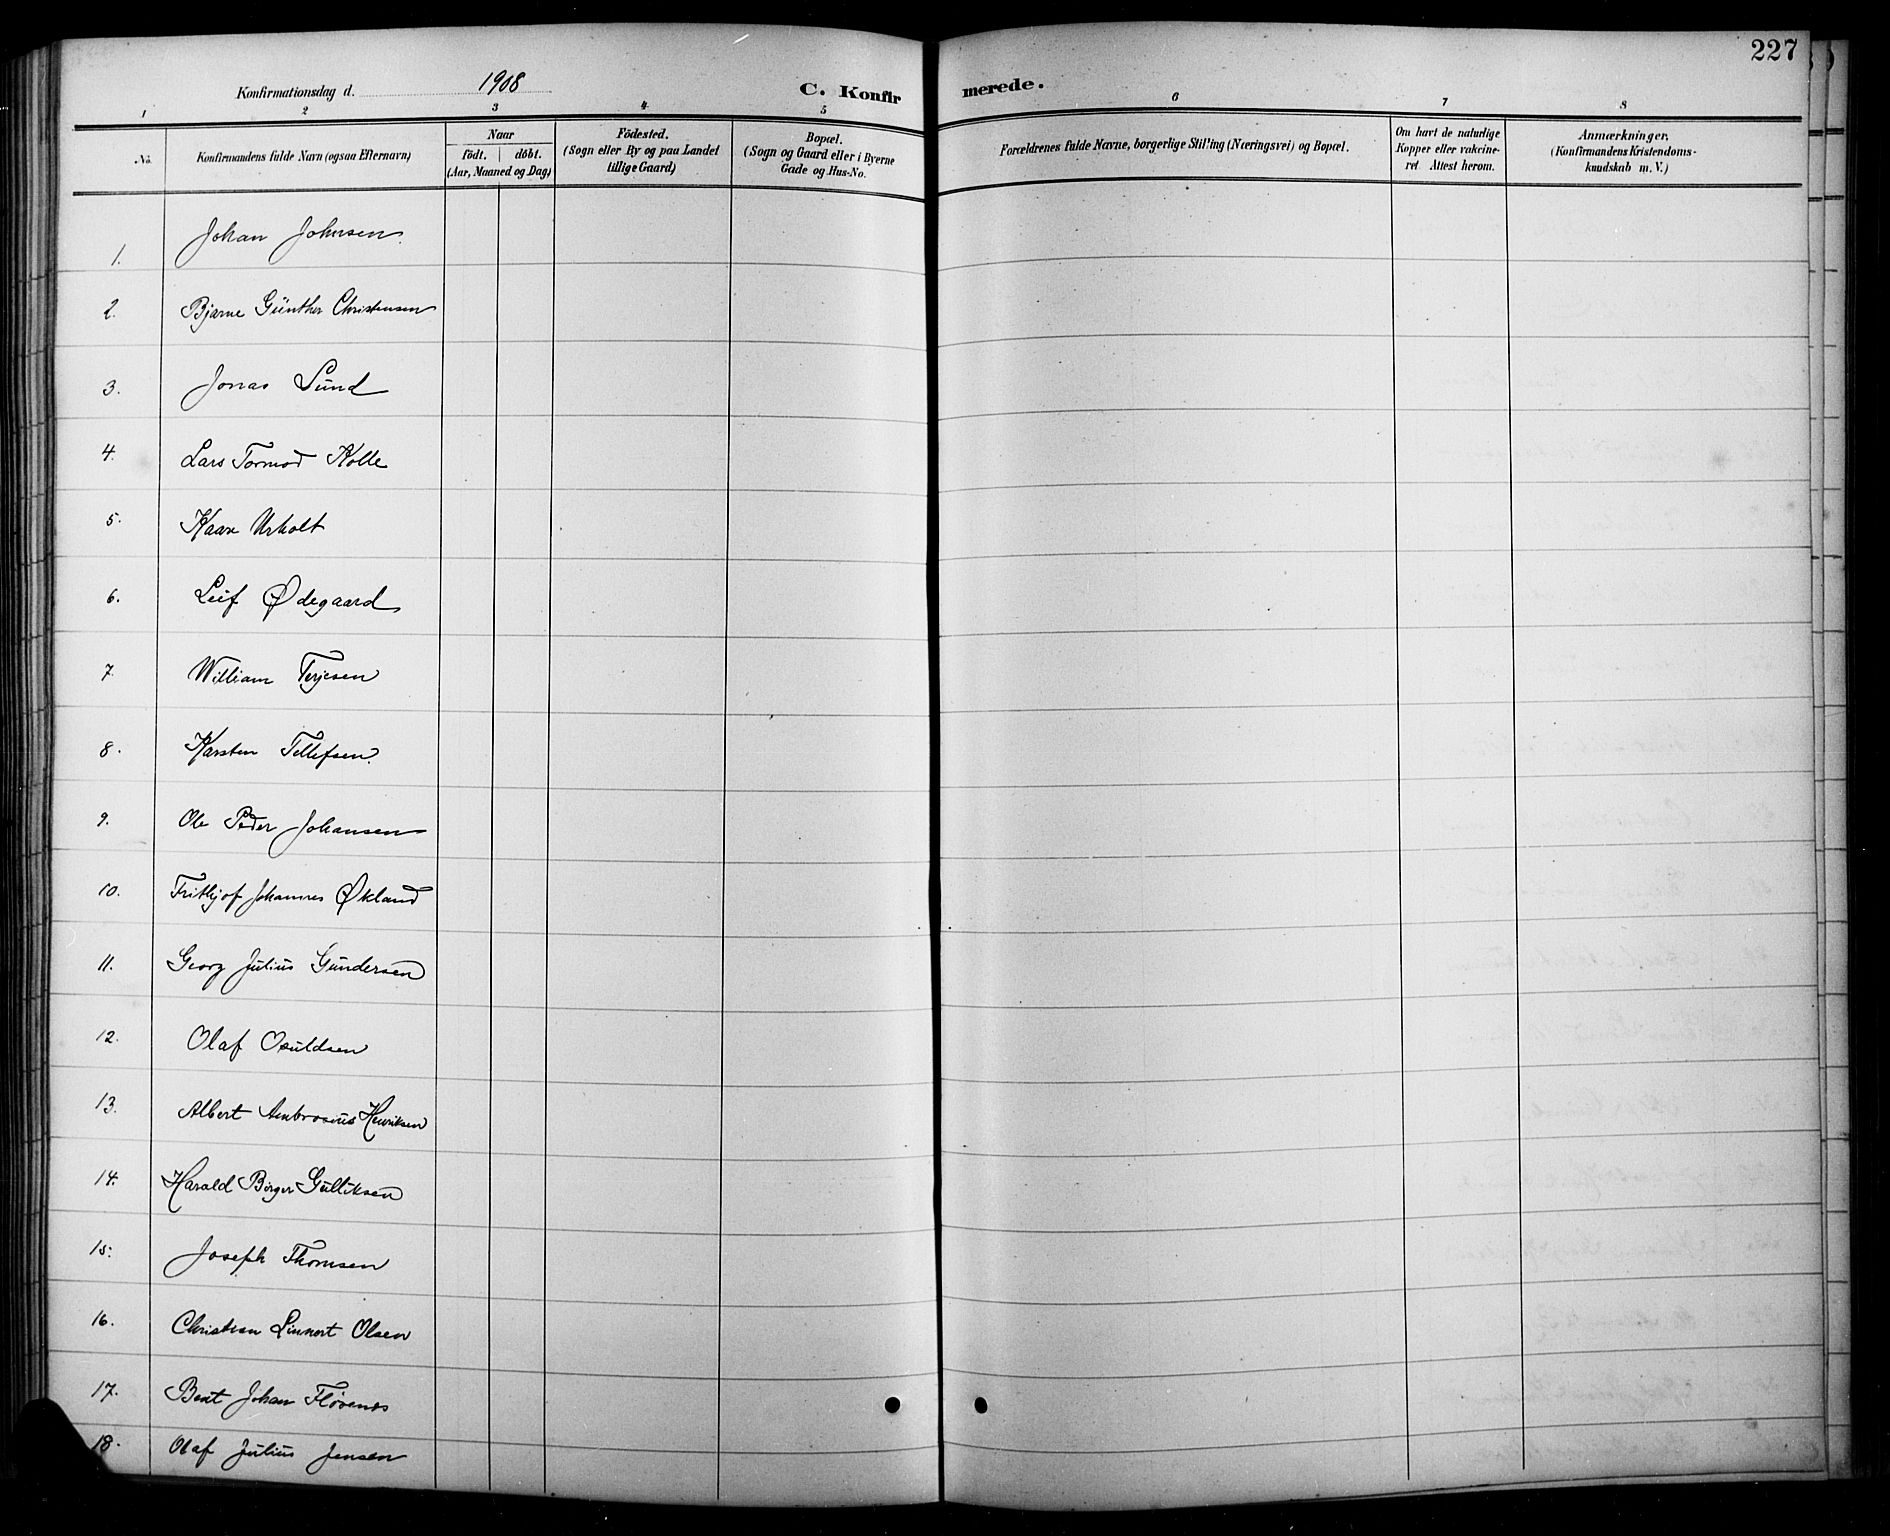 227
Konfirmationsdag d. 1908
C. Konfirmerede.
1 2 3 4 5 6 7 8
No.
Konfirmandens fulde Navn (ogsaa Efternavn)
Naar
födt. | døbt.
(Aar, Maaned og Dag)
Födested.
(Sogn eller By og paa Landet
tillige Gaard)
Bopæl.
(Sogn og Gaard eller i Byerne
Gade og Hus-No.
Forældrenes fulde Navne, borgerlige Stilling (Næringsvei) og Bopæl.
Om havt de naturlige
Kopper eller vakcine-
ret. Attest herom.
Anmærkninger.
(Konfirmandens Kristendoms-
kundskab m. V.)
1. Johan Johnsen.
2. Bjarne Günther Christensen
3. Jonas Lund
4. Lars Tormod Kolle
5. Kaare Urholt
6. Leif Ødegaard
7. William Terjesen
8. Karsten Tellefsen.
9. Ole Peder Johansen
10. Frithjof Johannes Økland
11. Georg Julius Gundersen
12. Olaf Osuldsen
13. Albert Ambrosius Henriksen
14. Harald Birger Gulliksen
15. Joseph Thomsen
16. Christian Linnert Olsen
17. Bent Johan Fløvenes
18. Olaf Julius Jensen